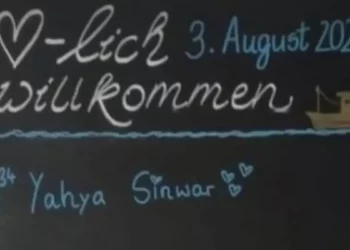 ♡-lich 3. August 202
willkommen
34 Yahya Sinwar ♡♡♡